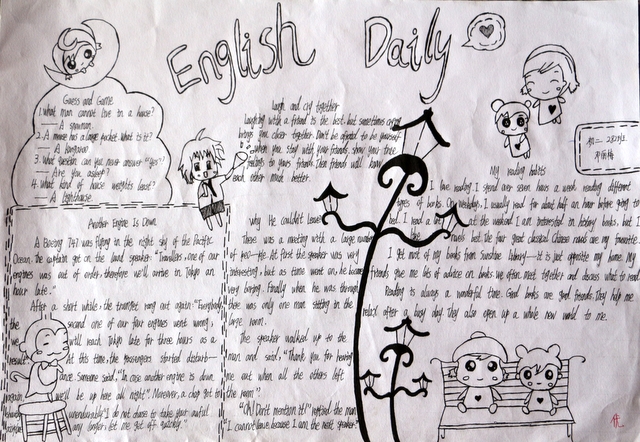 English Daily
Guess and Game
1. What man cannot live in a house?
— A snowman.
2. A mouse has a large pocket. What is it?
— A kangaroo
3. What question can you never answer "Yes"?
— Are you asleep?
4. What kind of house weighs least?
— A lighthouse
Another Engine Is Down
A Boeing 747 was flying in the night sky of the Pacific
Ocean, the captain got on the loud speaker: "Travellers, one of our
engines was out of order, therefore we'll arrive in Tokyo an
hour late."
After a short while, the trumpet rang out again: "Everybody
the second one of our four engines went wrong.
we will reach Tokyo late for three hours as a
result. At this time, the passengers started disturb—
ance. Someone said, "In case another engine is down
we'll be up here all night". Moreover, a chap got to
unendurably: "I do not choose to take your awful
any longer, let me get off quickly."
Laugh and cry together
Laughing with a friend is the best, but sometimes crying
brings you closer together. Don't be afraid to be yourself
when you stay with your friends, show your true
to yours friends. Then friends will know
each other much better.
Why He Couldn't Leave
There was a meeting with a large number
of people. At first the speaker was very
interesting, but as time went on, he became
very boring. Finally when he was through
there was only one man sitting in the
large room.
The speaker walked up to the
man and said, "Thank you for hearing
me out when all the others left
the room".
"Oh! Don't mention it!" replied the man
"I cannot leave, because I am the next speaker."
初二
My reading habits
I love reading. I spend over seven hours a week reading different
types of books. On weekdays, I usually read for about half an hour before going to
bed. I read a lot at the weekend. I am interested in history books, but I
like novels too. The four great classical Chinese novels are my favourite.
I get most of my books from Sunshine Library—it is just opposite my home. My
friends give me lots of advice on books. We often meet together and discuss what to read.
Reading is always a wonderful time. Good books are good friends. They help me
relax after a busy day. They also open up a whole new world to me.